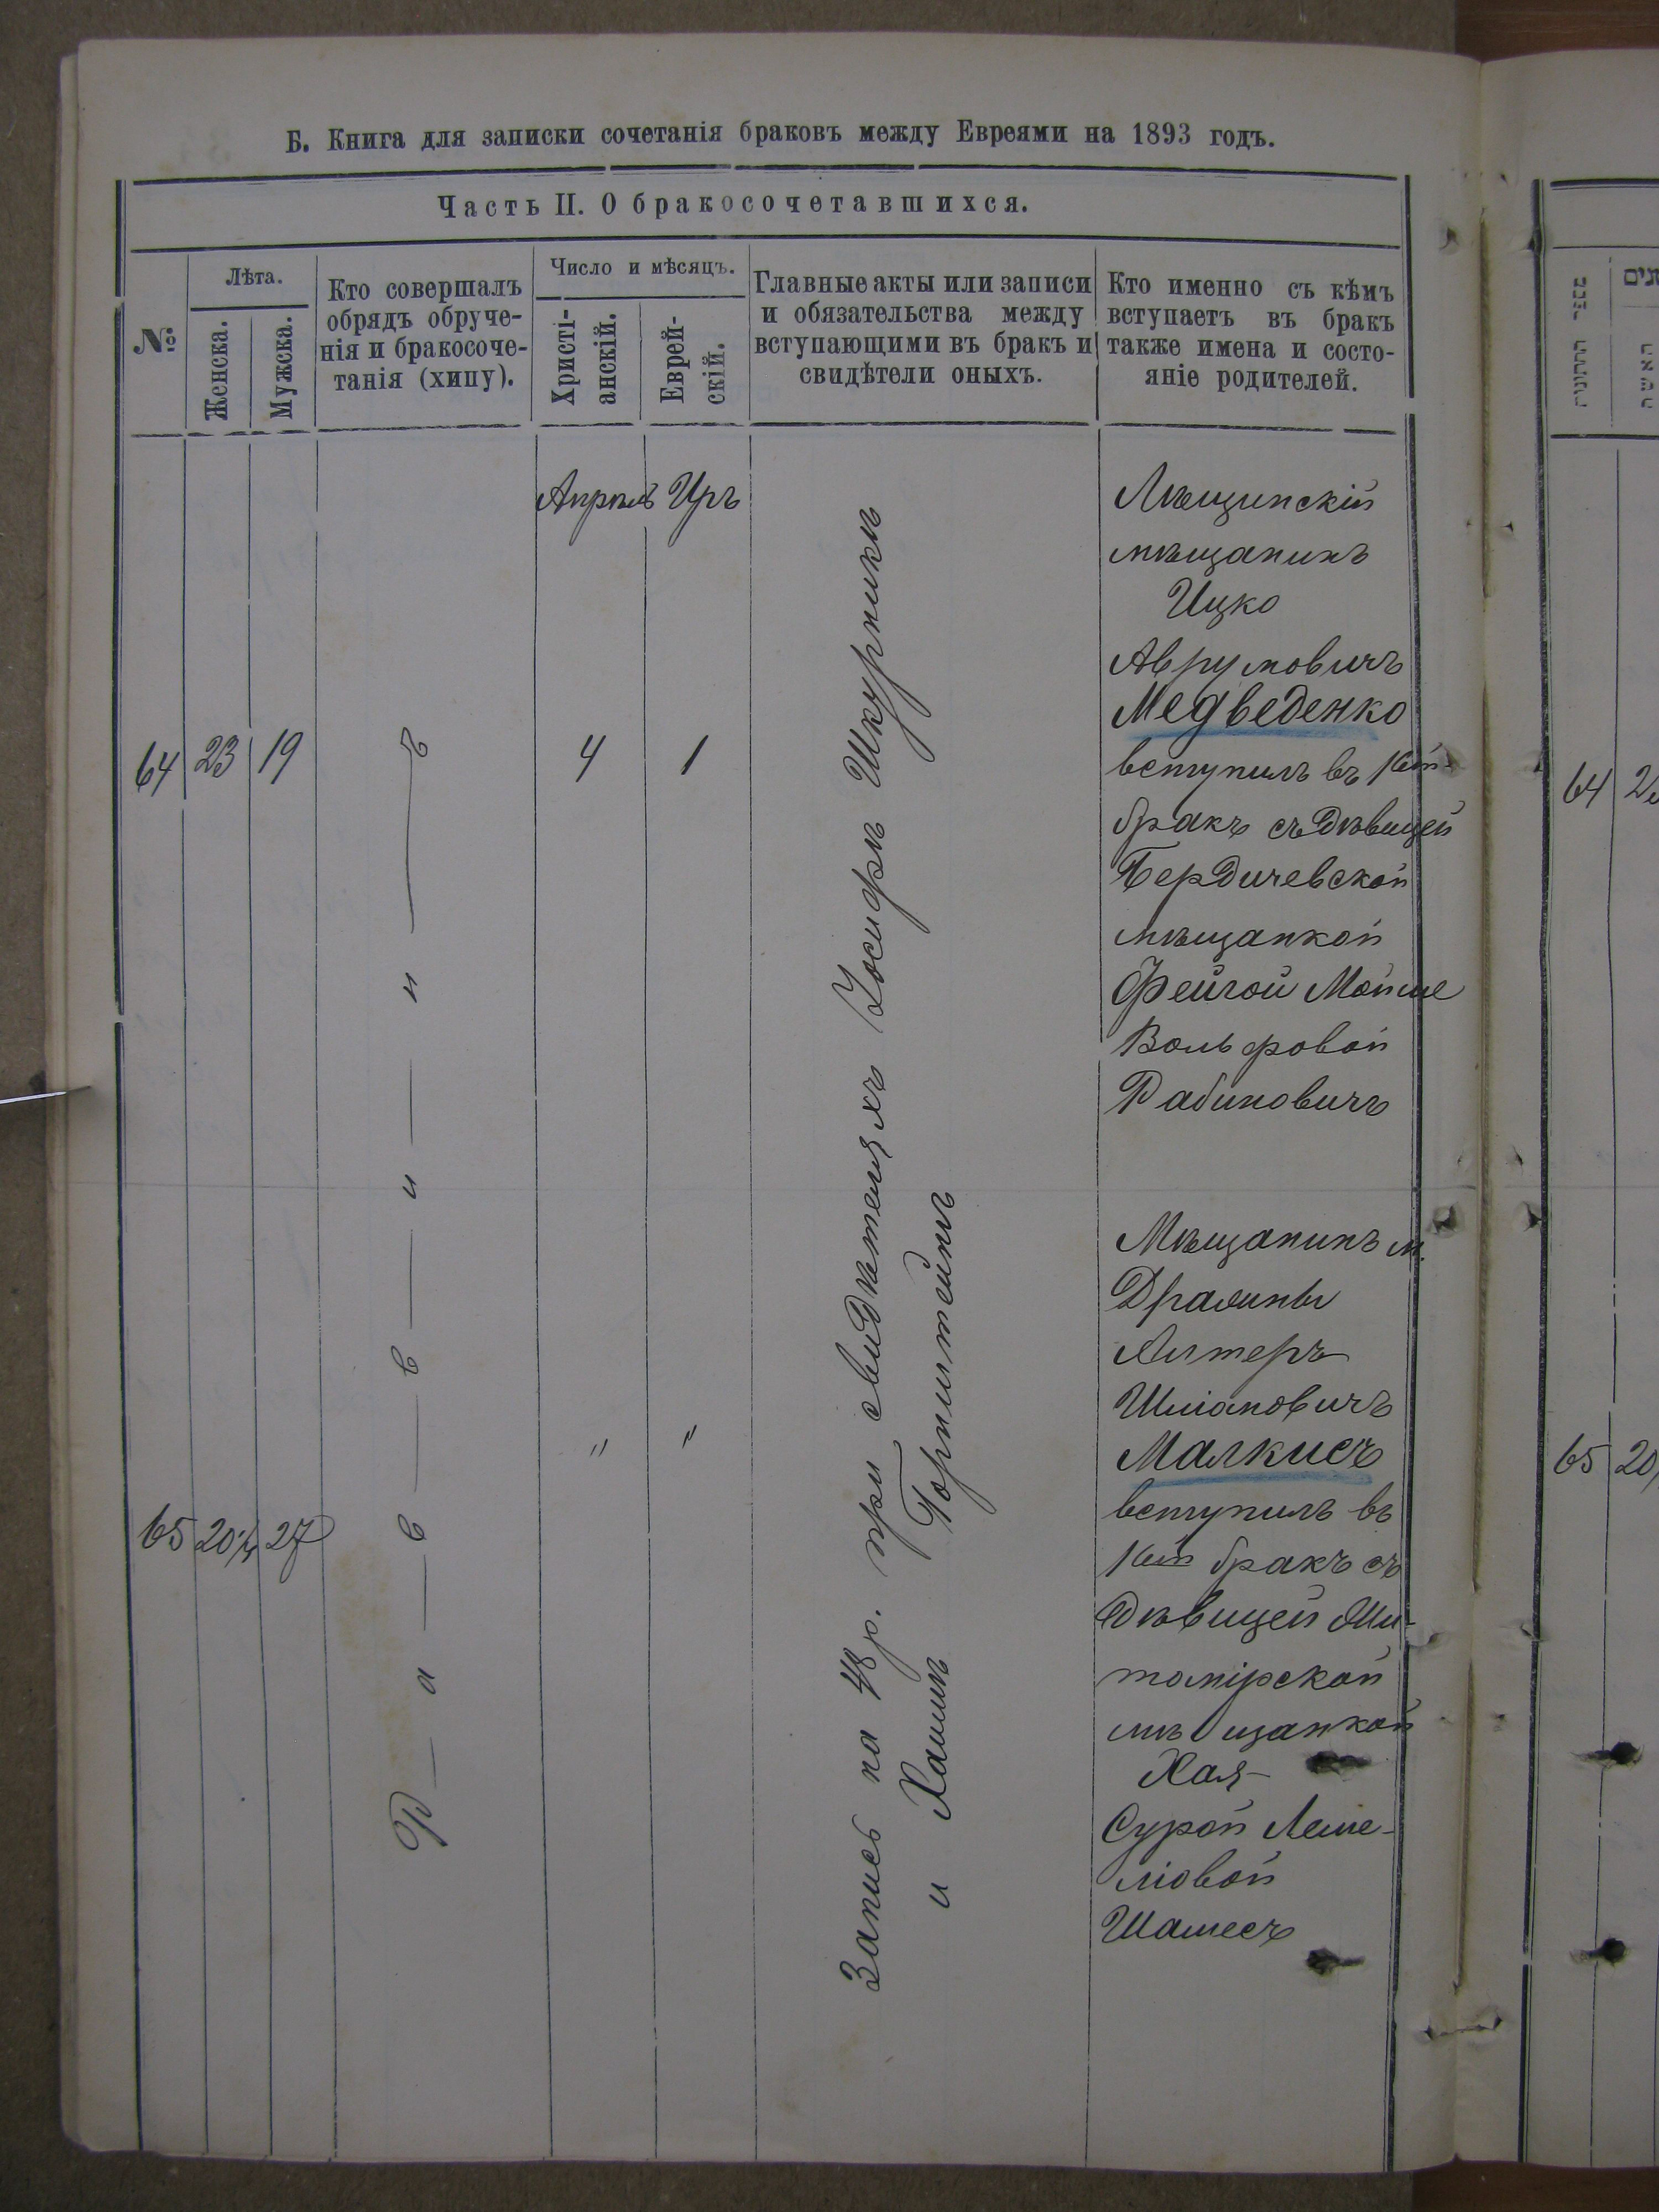 Б. Книга для записки сочетанія браковъ между Евреями на 1893 годъ.
Часть II. О бракосочетавшихся.
№
Лѣта.
Женска.
Мужска.
Кто совершалъ
обрядъ обруче-
нія и бракосоче-
танія (хипу).
Число и мѣсяцъ.
Христі-
анскій.
Еврей-
скій.
Главные акты или записи
и обязательства между
вступающими въ бракъ и
свидѣтели оныхъ.
Кто именно съ кѣмъ
вступаетъ въ бракъ
также имена и состо-
яніе родителей.
Апрѣль Иръ
64 23 19
4 1
Р а в в и н ъ
Запись на 48 р. при свидѣтеляхъ Іосифѣ Шкурникѣ
и Хаимѣ Горнштейнѣ
мѣщанинъ
Ицко
Аврумовичъ
Медведенко
вступилъ въ 1ый
бракъ съ дѣвицей
Бердичевской
мѣщанкой
Фейгой Мойше
Вольфовой
Рабиновичъ
65 20½ 27
" "
Мѣщанинъ м.
Альтеръ
Шліомовичъ
Малкисъ
вступилъ въ
1ый бракъ съ
дѣвицей Жи-
томірской
мѣщанкой
Хая-
Сурой Леме-
ліовой
Шамесъ
64
65 20